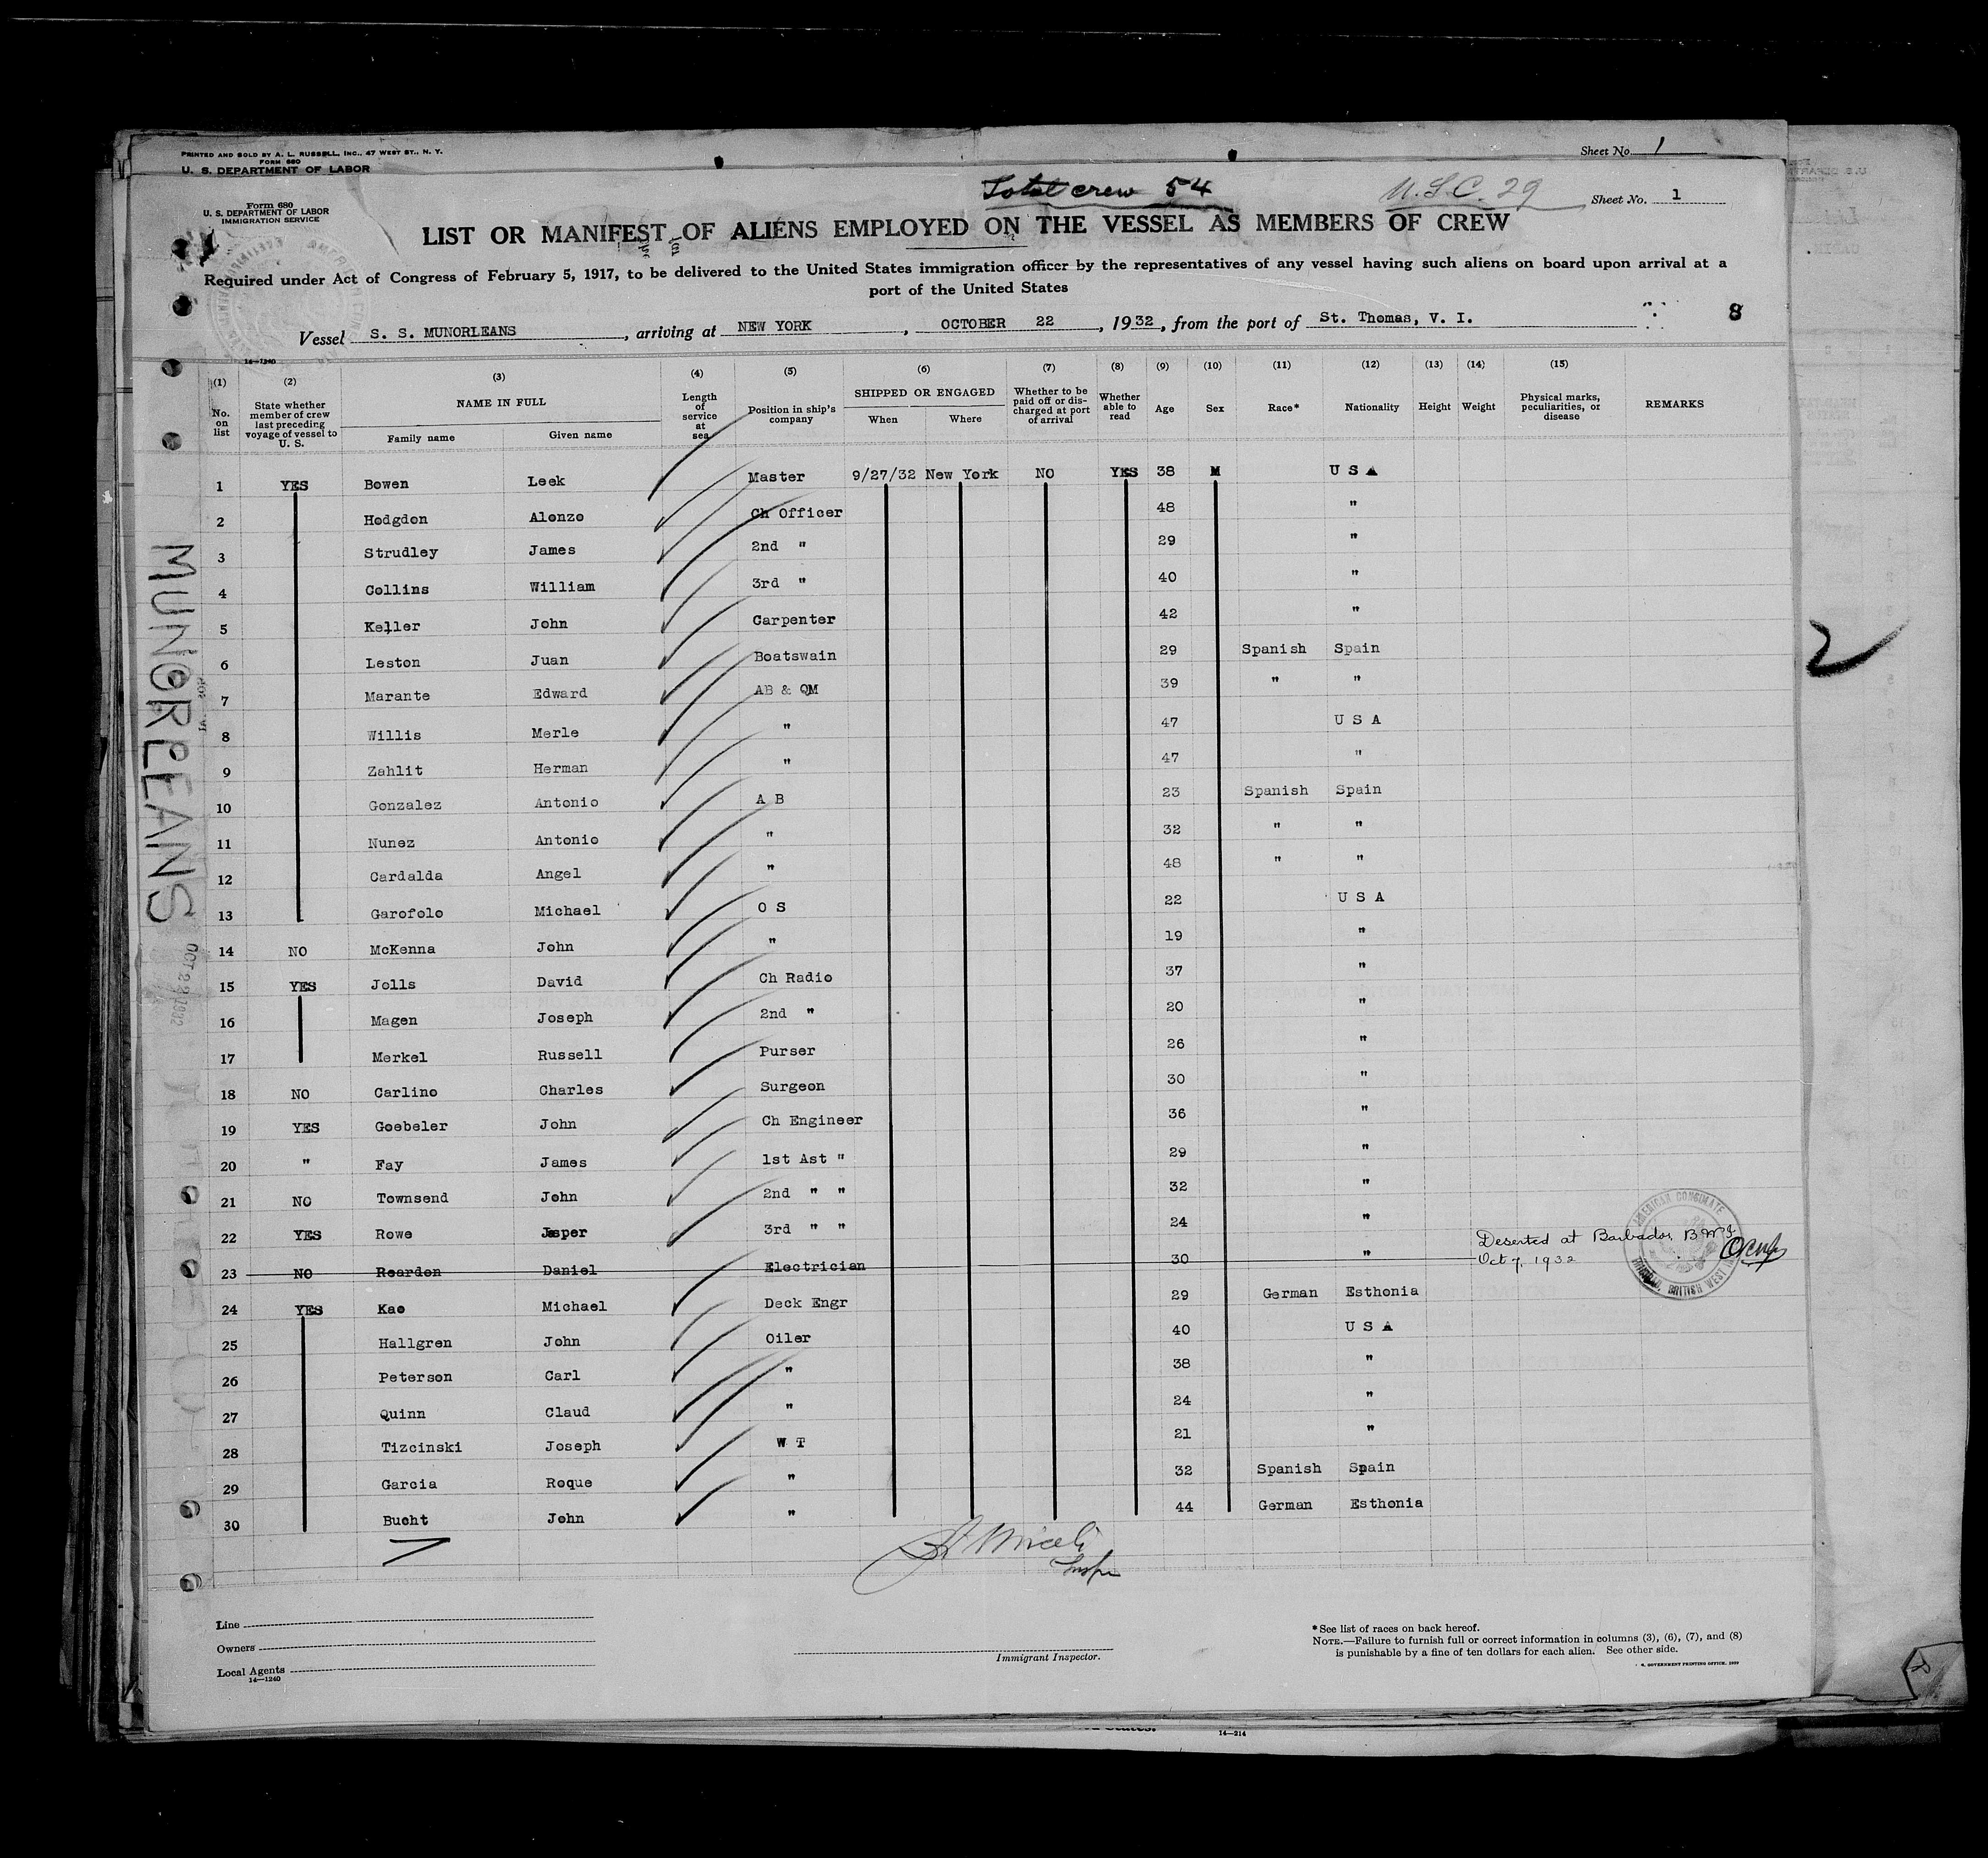 PRINTED AND SOLD BY A. L. RUSSELL, INC., 47 WEST ST., N. Y.
FORM 680
U. S. DEPARTMENT OF LABOR
Sheet No. 1
Total crew 54
U.S.C. 29
Sheet No. 1
Form 680
U. S. DEPARTMENT OF LABOR
IMMIGRATION SERVICE
LIST OR MANIFEST OF ALIENS EMPLOYED ON THE VESSEL AS MEMBERS OF CREW
Required under Act of Congress of February 5, 1917, to be delivered to the United States immigration officer by the representatives of any vessel having such aliens on board upon arrival at a
port of the United States
8
Vessel S. S. MUNORLEANS, arriving at NEW YORK, OCTOBER 22, 1932, from the port of St. Thomas, V. I.
14—1240
(1) No. on list (2) State whether member of crew last preceding voyage of vessel to U. S. (3) NAME IN FULL Family name Given name (4) Length of service at sea (5) Position in ship's company (6) SHIPPED OR ENGAGED When Where (7) Whether to be paid off or discharged at port of arrival (8) Whether able to read (9) Age (10) Sex (11) Race* (12) Nationality (13) Height (14) Weight (15) Physical marks, peculiarities, or disease REMARKS
1 YES Bowen Leek Master 9/27/32 New York NO YES 38 M U S A
2 Hodgdon Alonzo Ch Officer 48 "
3 Strudley James 2nd " 29 "
4 Collins William 3rd " 40 "
5 Keller John Carpenter 42 "
6 Leston Juan Boatswain 29 Spanish Spain
7 Marante Edward AB & QM 39 " "
8 Willis Merle " 47 U S A
9 Zahlit Herman " 47 "
10 Gonzalez Antonio A B 23 Spanish Spain
11 Nunez Antonio " 32 " "
12 Cardalda Angel " 48 " "
13 Garofolo Michael O S 22 U S A
14 NO McKenna John " 19 "
15 YES Jolls David Ch Radio 37 "
16 Magen Joseph 2nd " 20 "
17 Merkel Russell Purser 26 "
18 NO Carlino Charles Surgeon 30 "
19 YES Goebeler John Ch Engineer 36 "
20 " Fay James 1st Ast " 29 "
21 NO Townsend John 2nd " " 32 "
22 YES Rowe Jasper 3rd " " 24 "
23 NO Reardon Daniel Electrician 30 " Deserted at Barbados, B.W.I. Oct 7, 1932
24 YES Kao Michael Deck Engr 29 German Esthonia
25 Hallgren John Oiler 40 U S A
26 Peterson Carl " 38 "
27 Quinn Claud " 24 "
28 Tizcinski Joseph W T 21 "
29 Garcia Roque " 32 Spanish Spain
30 Bucht John " 44 German Esthonia
AMERICAN CONSULATE
TRINIDAD, BRITISH WEST
MUNORLEANS
OCT 22 1932
2
Inspr
Line
Owners
Local Agents
14—1240
Immigrant Inspector.
*See list of races on back hereof.
NOTE.—Failure to furnish full or correct information in columns (3), (6), (7), and (8)
is punishable by a fine of ten dollars for each alien. See other side.
14—214